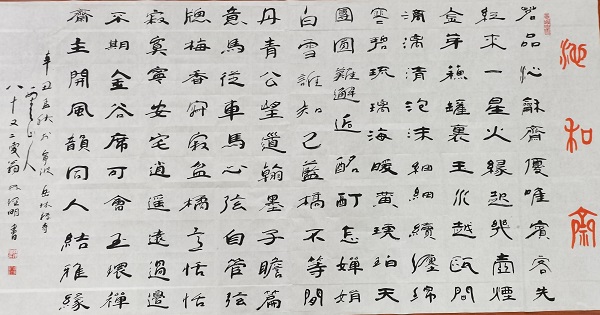 沁和齋
茗品沁龢齋優唯賓客先
紅來一星火緣起幾壺煙
金芽蘓罐裏玉水越甌間
滴滿清泡沫細細續纏綿
雲碧琉璃海暖黃琥珀天
團圓難邂逅酩酊怎嬋娟
白雪誰知己藍橋不等閒
丹青公望道翰墨子瞻篇
意馬從車馬心弦自管弦
牕梅香寂盆橘恬恬
寂寞寧安宅逍遙遠過邊
不期金谷席可會玉環禪
齋主開風韻同人結雅緣
辛丑立秋於
八十又二叟翁明書